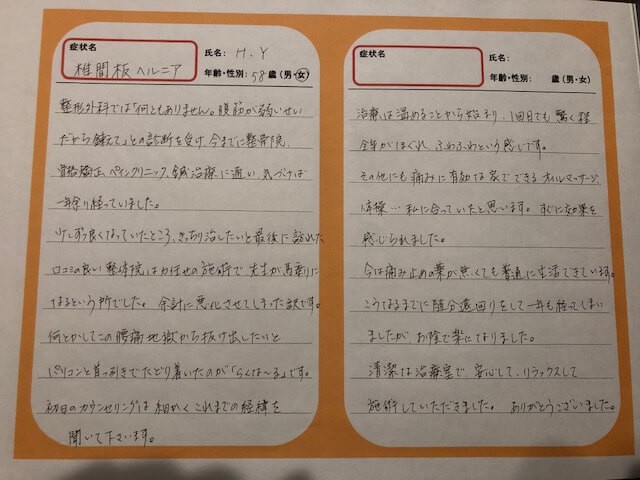 症状名
椎間板ヘルニア
氏名: H.Y
年齢・性別: 58歳(男・女)
整形外科では「何ともありません。腹筋が弱いせい
だから鍛えて」との診断を受け、今までに整骨院、
骨格矯正、ペインクリニック、鍼治療に通い、気づけば
一年余り経っていました。
少しずつ良くなっていたところ、きっちり治したいと最後に訪れた
口コミの良い整体院は力任せの施術で先生が馬乗りに
なるという所でした。余計に悪化させてしまった訳です。
何とかしてこの腰痛地獄から抜け出したいと
パソコンと首っ引きでたどり着いたのが「らくは〜る」です。
初日のカウンセリングは細かくこれまでの経緯を
聞いて下さいます。
症状名
氏名:
年齢・性別: 歳(男・女)
治療は温めることから始まり、1回目でも驚く程
全身がほぐれ、ふわふわという感じです。
その他にも痛みに有効な家でできるオイルマッサージ、
体操…私に合っていたと思います。すぐに効果を
感じられました。
今は痛み止めの薬が無くても普通に生活できています。
こうなるまでに随分遠回りをして一年も経ってしまい
ましたがお陰で楽になりました。
清潔な治療室で、安心して、リラックスして
施術していただきました。 ありがとうございました。